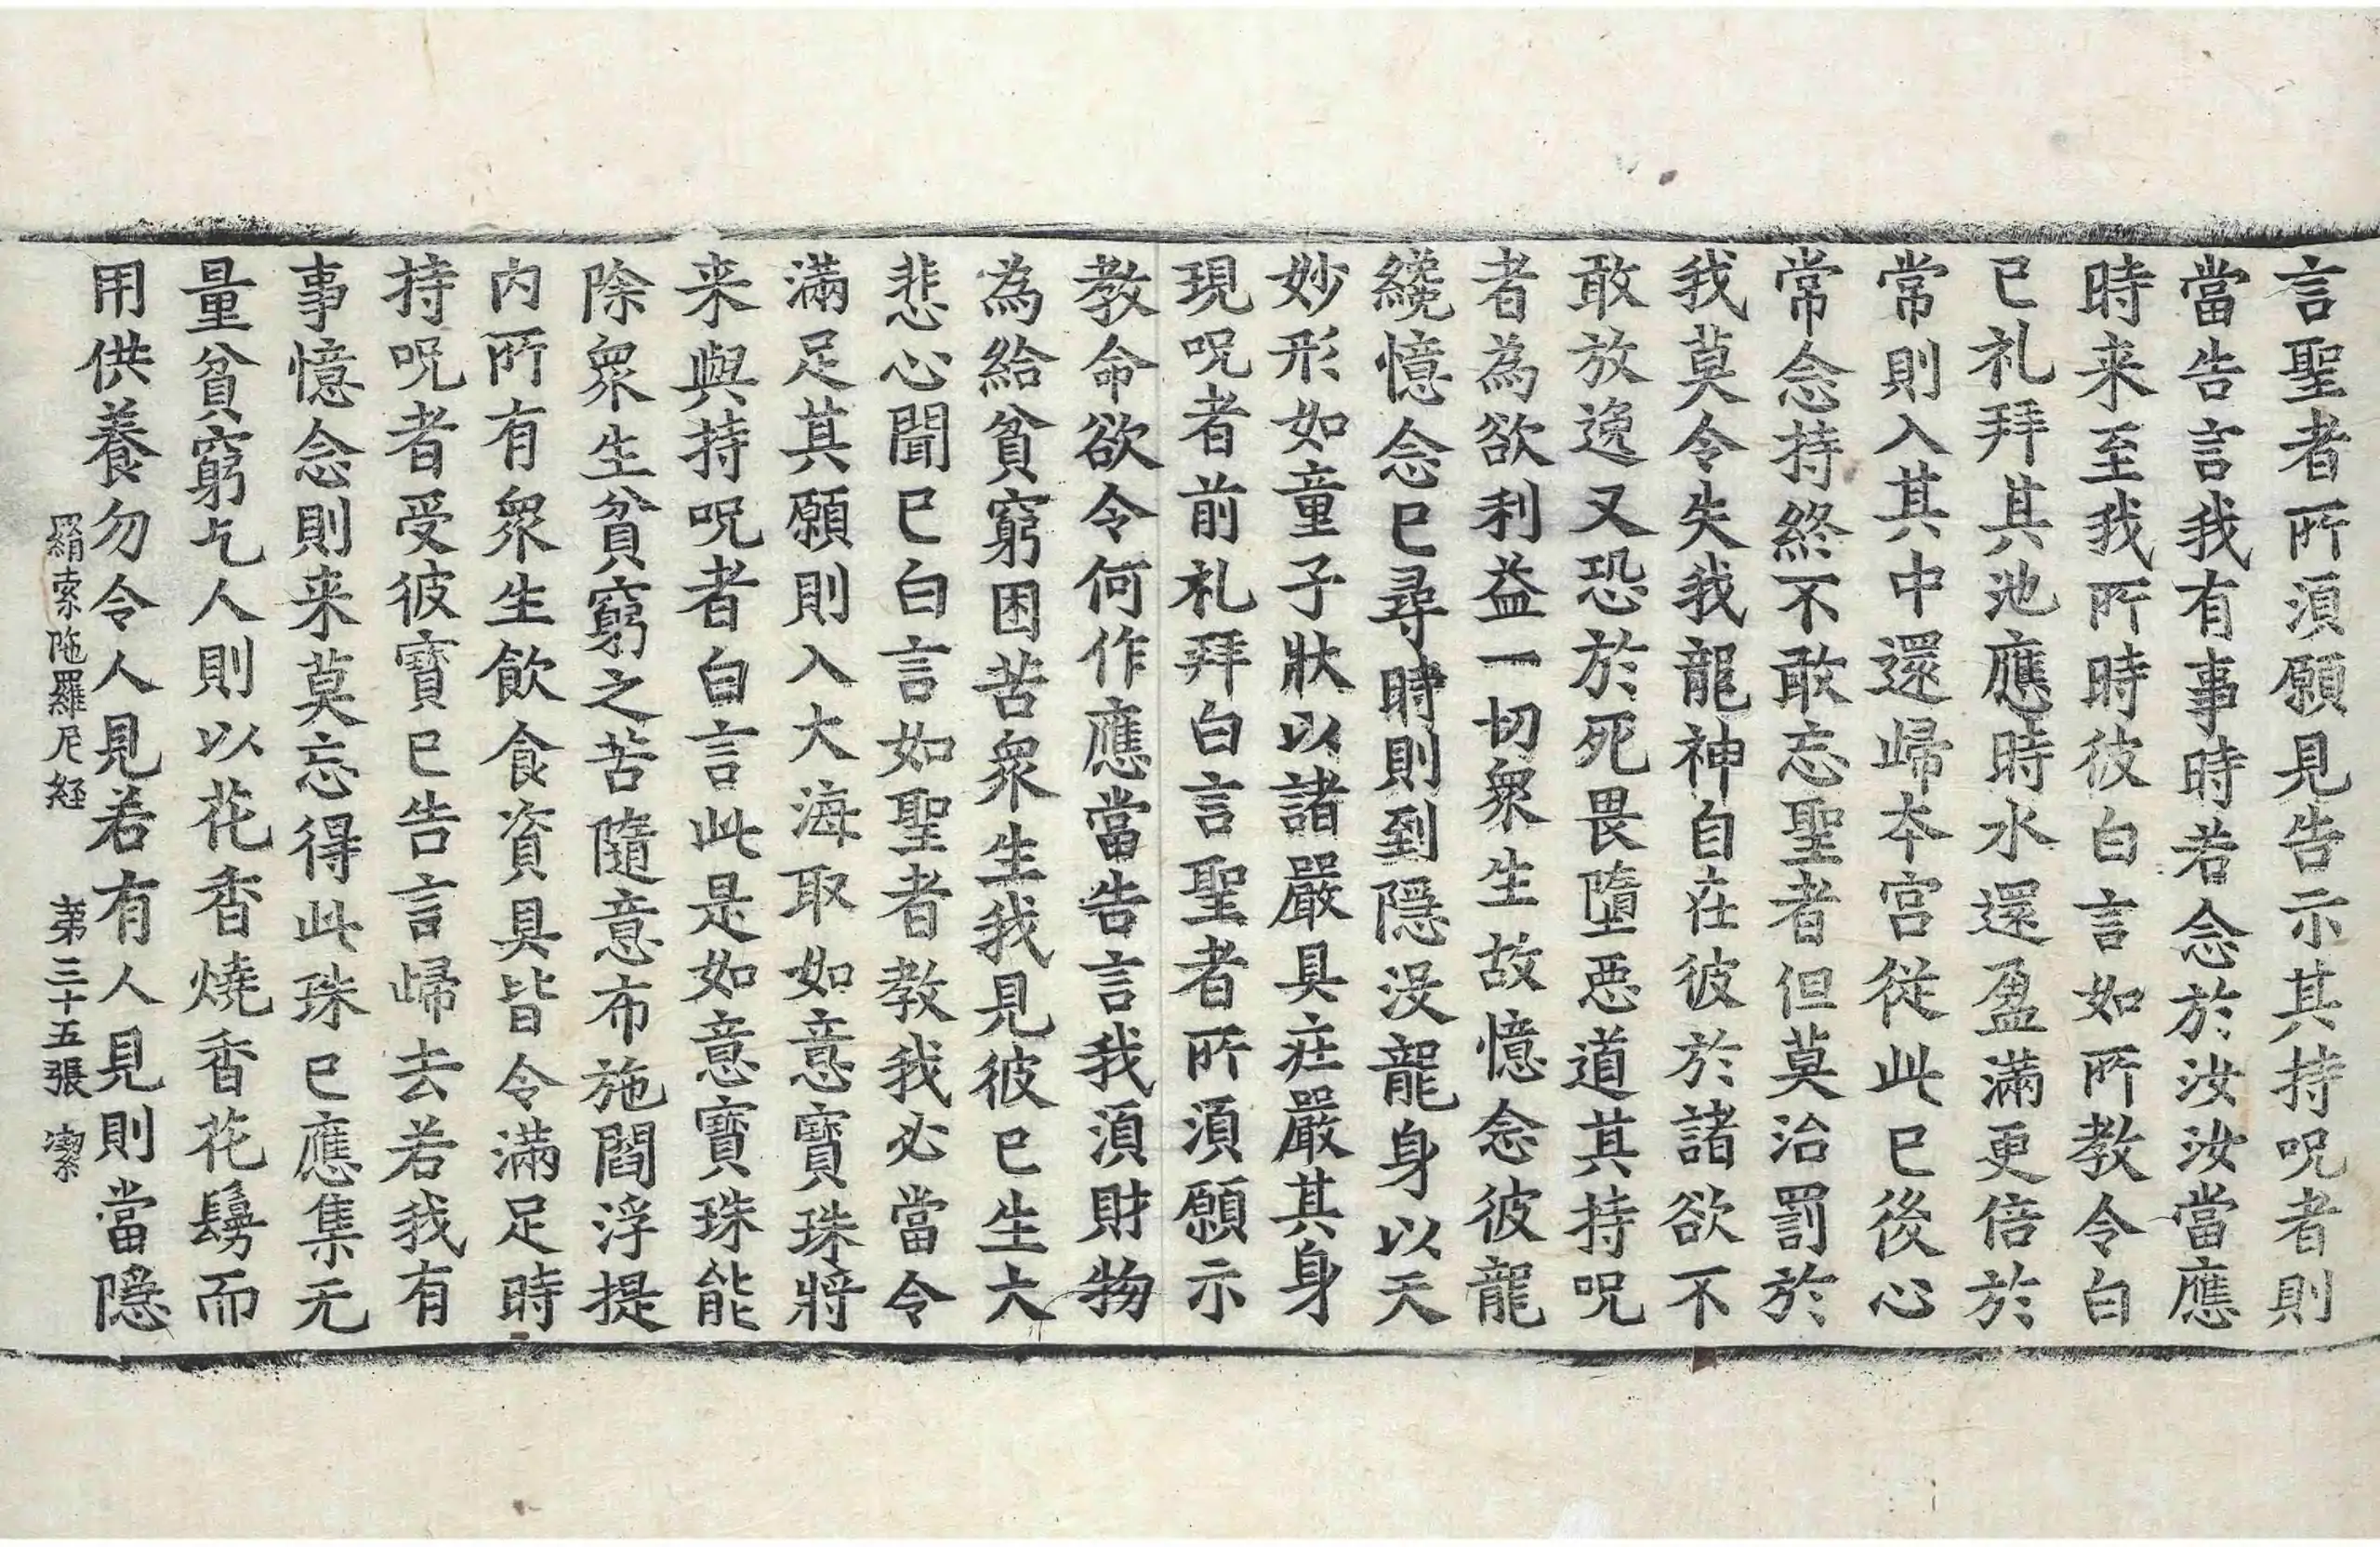 言聖者所湏願見告示其持呪者則
當告言我有事時若念於汝汝當應
時来至我所時彼白言如所教令白
已礼拜其池應時水還盈滿更倍於
常則入其中還歸本宮從此已後心
常念持終不敢忘聖者但莫治罰於
我莫令失我龍神自在彼於諸欲不
敢放逸又恐於死畏墮惡道其持呪
者為欲利益一切衆生故憶念彼龍
纔憶念已尋時則到隱没龍身以天
妙形如童子狀以諸嚴具莊嚴其身
現呪者前礼拜白言聖者所湏願示
教命欲令何作應當告言我湏財物
為給貧窮困苦衆生我見彼已生大
悲心聞已白言如聖者教我必當令
滿足其願則入大海取如意寶珠將
来與持呪者白言此是如意寶珠能
除衆生貧窮之苦隨意布施閻浮提
内所有衆生飲食資具皆令滿足時
持呪者受彼寶已告言歸去若我有
事憶念則来莫忘得此珠已應集无
量貧窮乞人則以花香燒香花鬘而
用供養勿令人見若有人見則當隱
羂索陁羅尼経 苐三十五張 潔